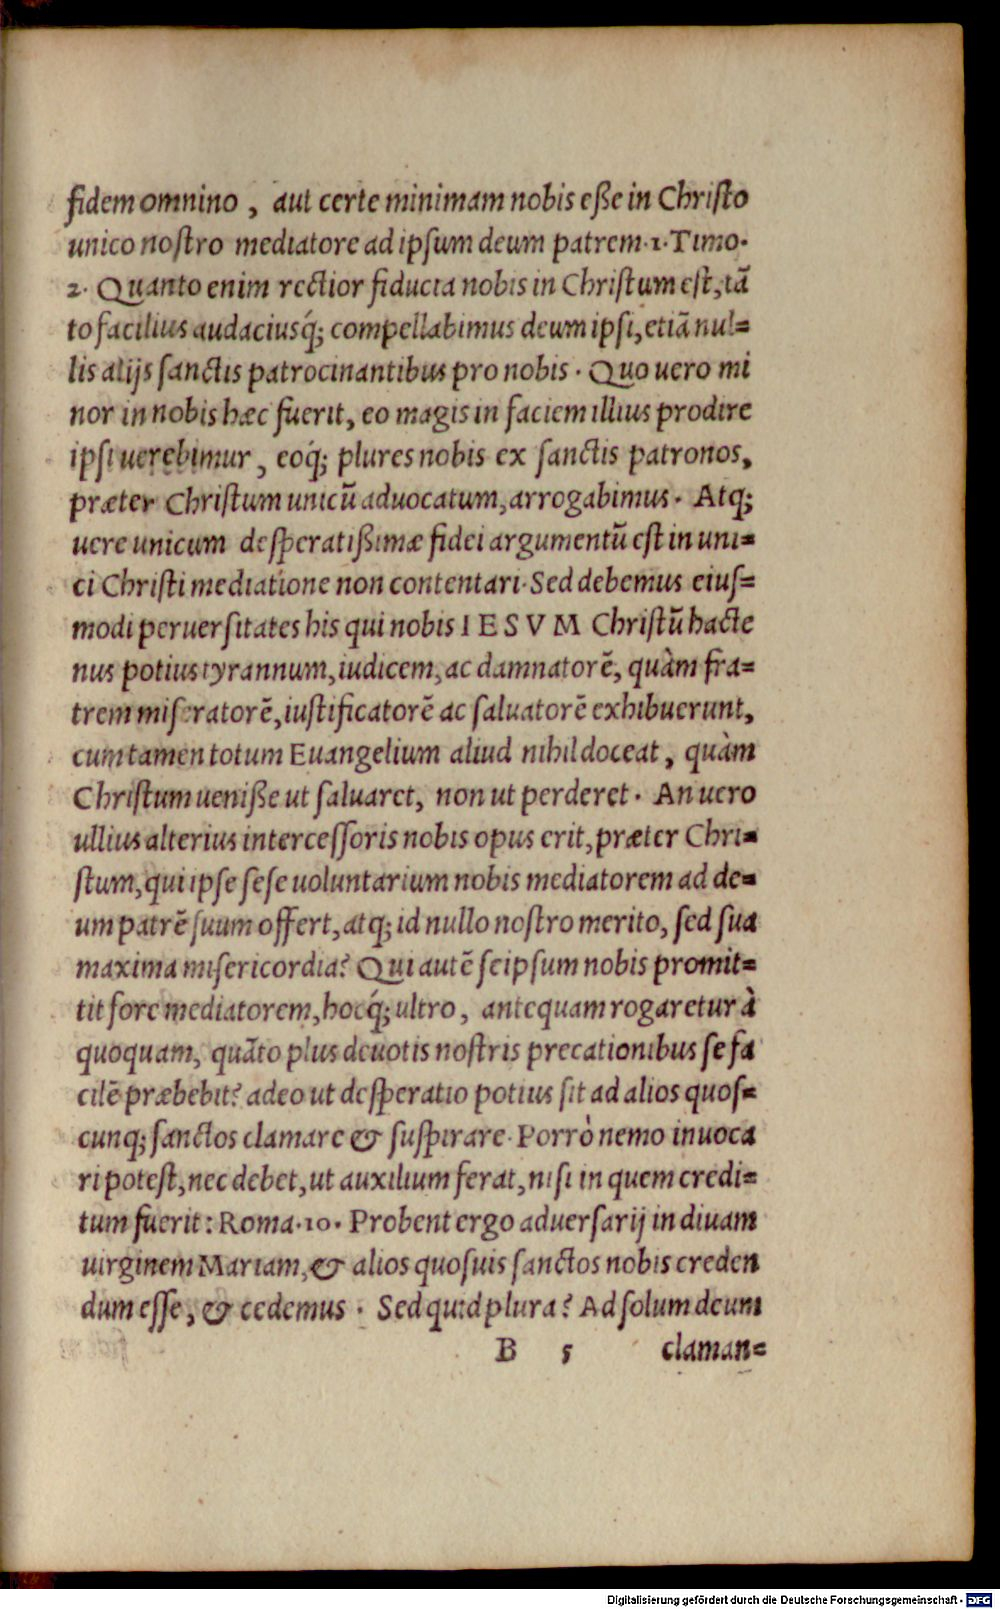 fidem omnino, aut certe minimam nobis eße in Christo
unico nostro mediatore ad ipsum deum patrem.1.Timo.
2. Quanto enim rectior fiducia nobis in Christum est, tã
to facilius audaciusq́; compellabimus deum ipsi, etiã nul=
lis alijs sanctis patrocinantibus pro nobis. Quo uero mi
nor in nobis hæc fuerit, eo magis in faciem illius prodire
ipsi uerebimur, eoq́; plures nobis ex sanctis patronos,
præter Christum unicũ aduocatum, arrogabimus. Atq;
uere unicum desperatißimæ fidei argumentũ est in uni=
ci Christi mediatione non contentari. Sed debemus eius=
modi peruersitates his qui nobis IESVM Christũ hacte
nus potius tyrannum, iudicem, ac damnatorẽ, quàm fra=
trem miseratorẽ, iustificatorẽ ac saluatorẽ exhibuerunt,
cum tamen totum Euangelium aliud nihil doceat, quàm
Christum ueniße ut saluaret, non ut perderet. An uero
ullius alterius intercessoris nobis opus erit, præter Chri=
stum, qui ipse sese uoluntarium nobis mediatorem ad de=
um patrẽ suum offert, atq; id nullo nostro merito, sed sua
maxima misericordia? Qui autẽ seipsum nobis promit=
tit fore mediatorem, hocq́; ultro, antequam rogaretur à
quoquam, quãto plus deuotis nostris precationibus se fa
cilẽ præbebit? adeo ut desperatio potius sit ad alios quos=
cunq; sanctos clamare & suspirare. Porrò nemo inuoca
ri potest, nec debet, ut auxilium ferat, nisi in quem credi=
tum fuerit: Roma.10. Probent ergo aduersarij in diuam
uirginem Mariam, & alios quosuis sanctos nobis creden
dum esse, & cedemus. Sed quid plura? Ad solum deum
B 5 claman=
Digitalisierung gefördert durch die Deutsche Forschungsgemeinschaft - DFG